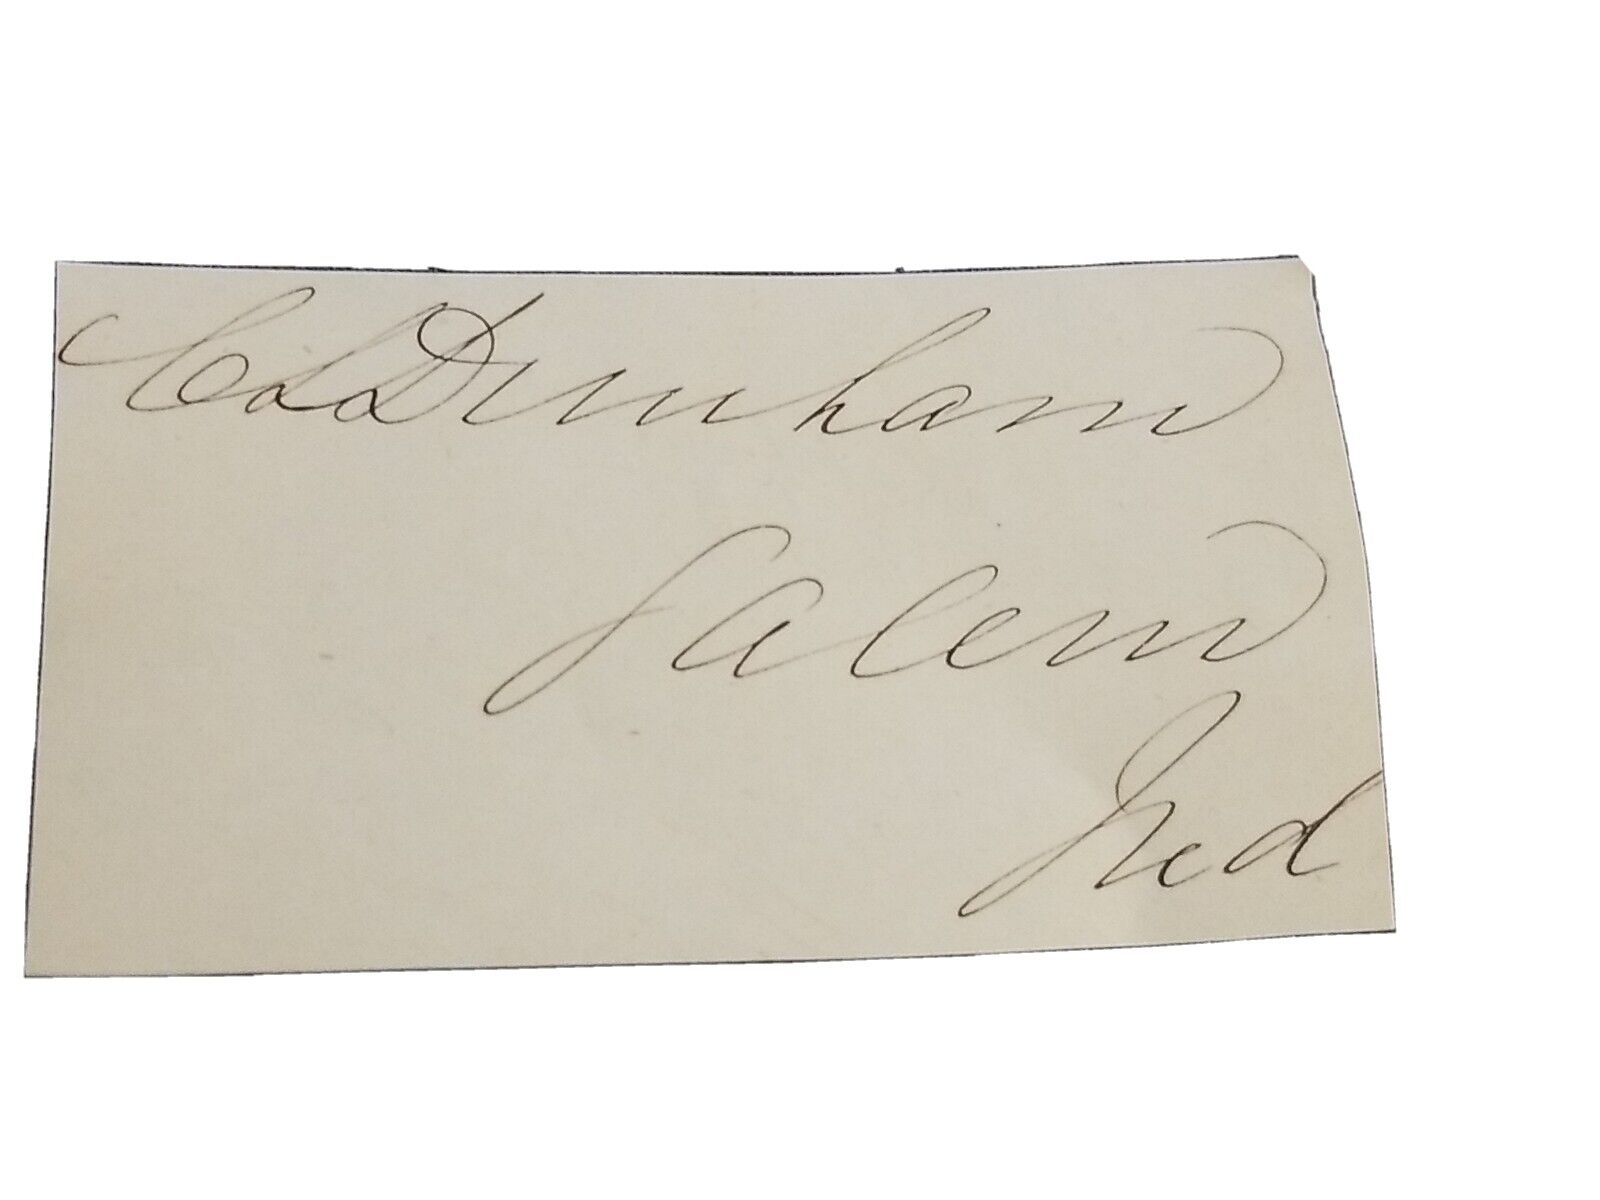 C L Dunham
Salem
Ind